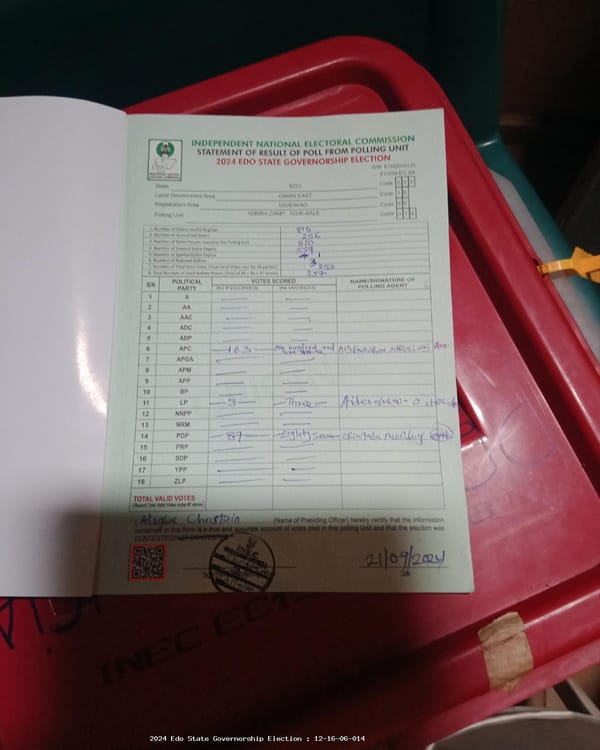 INDEPENDENT NATIONAL ELECTORAL COMMISSION
STATEMENT OF RESULT OF POLL FROM POLLING UNIT
2024 EDO STATE GOVERNORSHIP ELECTION
FORM EC 8A
State EDO Code 1 2
Local Government Area OWAN EAST Code 1 6
Registration Area Code 0 6
Polling Unit Code 0 1 4
1. Number of Voters on the Register 816
2. Number of Accredited Voters 256
3. Number of Ballot Papers Issued to the Polling Unit 810
4. Number of Unused Ballot Papers
5. Number of Spoiled Ballot Papers 1
6. Number of Rejected Ballots 3
7. Number of Total Valid Votes 253
257
S/N POLITICAL PARTY VOTES SCORED NAME/SIGNATURE OF POLLING AGENT
IN FIGURES IN WORDS
1 A
2 AA
3 AAC
4 ADC
5 ADP
6 APC 163 One hundred and
7 APGA
8 APM
9 APP
10 BP
11 LP 3 Three
12 NNPP
13 NRM
14 PDP 87 Eighty seven
15 PRP
16 SDP
17 YPP
18 ZLP
TOTAL VALID VOTES
I, Christain (Name of Presiding Officer) hereby certify that the information
contained in this form is a true and accurate account of votes cast in this polling Unit and that the election was
CONTESTED/NOT CONTESTED
21/09/2024
Date
INEC EC
2024 Edo State Governorship Election : 12-16-06-014